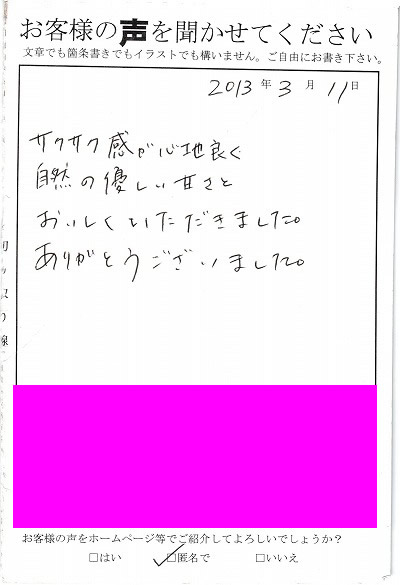 お客様の声を聞かせてください
文章でも箇条書きでもイラストでも構いません。ご自由にお書き下さい。
2013年3月11日
サクサク感が心地良く
自然の優しい甘さと
おいしくいただきました。
ありがとうございました。
切り取り線
お客様の声をホームページ等でご紹介してよろしいでしょうか？
□はい ☑匿名で □いいえ